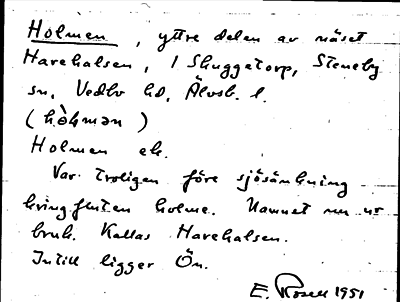 Holmen, yttre delen av näset
Harehalsen, i Skuggetorp, Steneby
sn, Vedbo hd, Älvsb. l.
(hòlmən)
Holmen ek.
Var troligen före sjösänkning
kringfluten holme. Namnet nu ur
bruk. Kallas Harehalsen.
Intill ligger Ön.
E. Rosell 1951